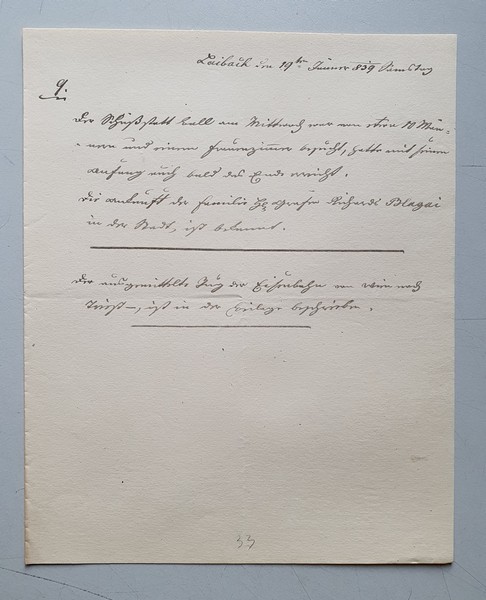 Laibach den 19ten Jänner 839 Samstag
9.
Der Schießstatt ball am Mittwoch war von etwa 10 Män-
nern und einem Frauenzimmer besucht, hatte mit seinem
Anfang auch bald das Ende erreicht.
Die Ankunft der Familie H. Grafen Richards Blagai
in der Stadt, ist bekannt.
Der ausgemittelte Zug der Eisenbahn von Wien nach
Triest, ist in der Beilage beschrieben.
33